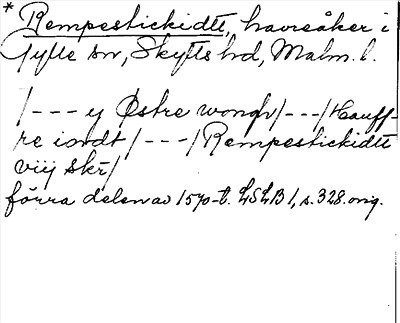 * Rempestickidtt, havreåker i
Tylte sn, Skytts hd, Malm. l.
/ - - - y Østre wongh / - - - / Hauff-
re iordt / - - - / Rempestickidtt
viij skr /
förra delen av 1570-t. LSLB 1, s. 328. orig.